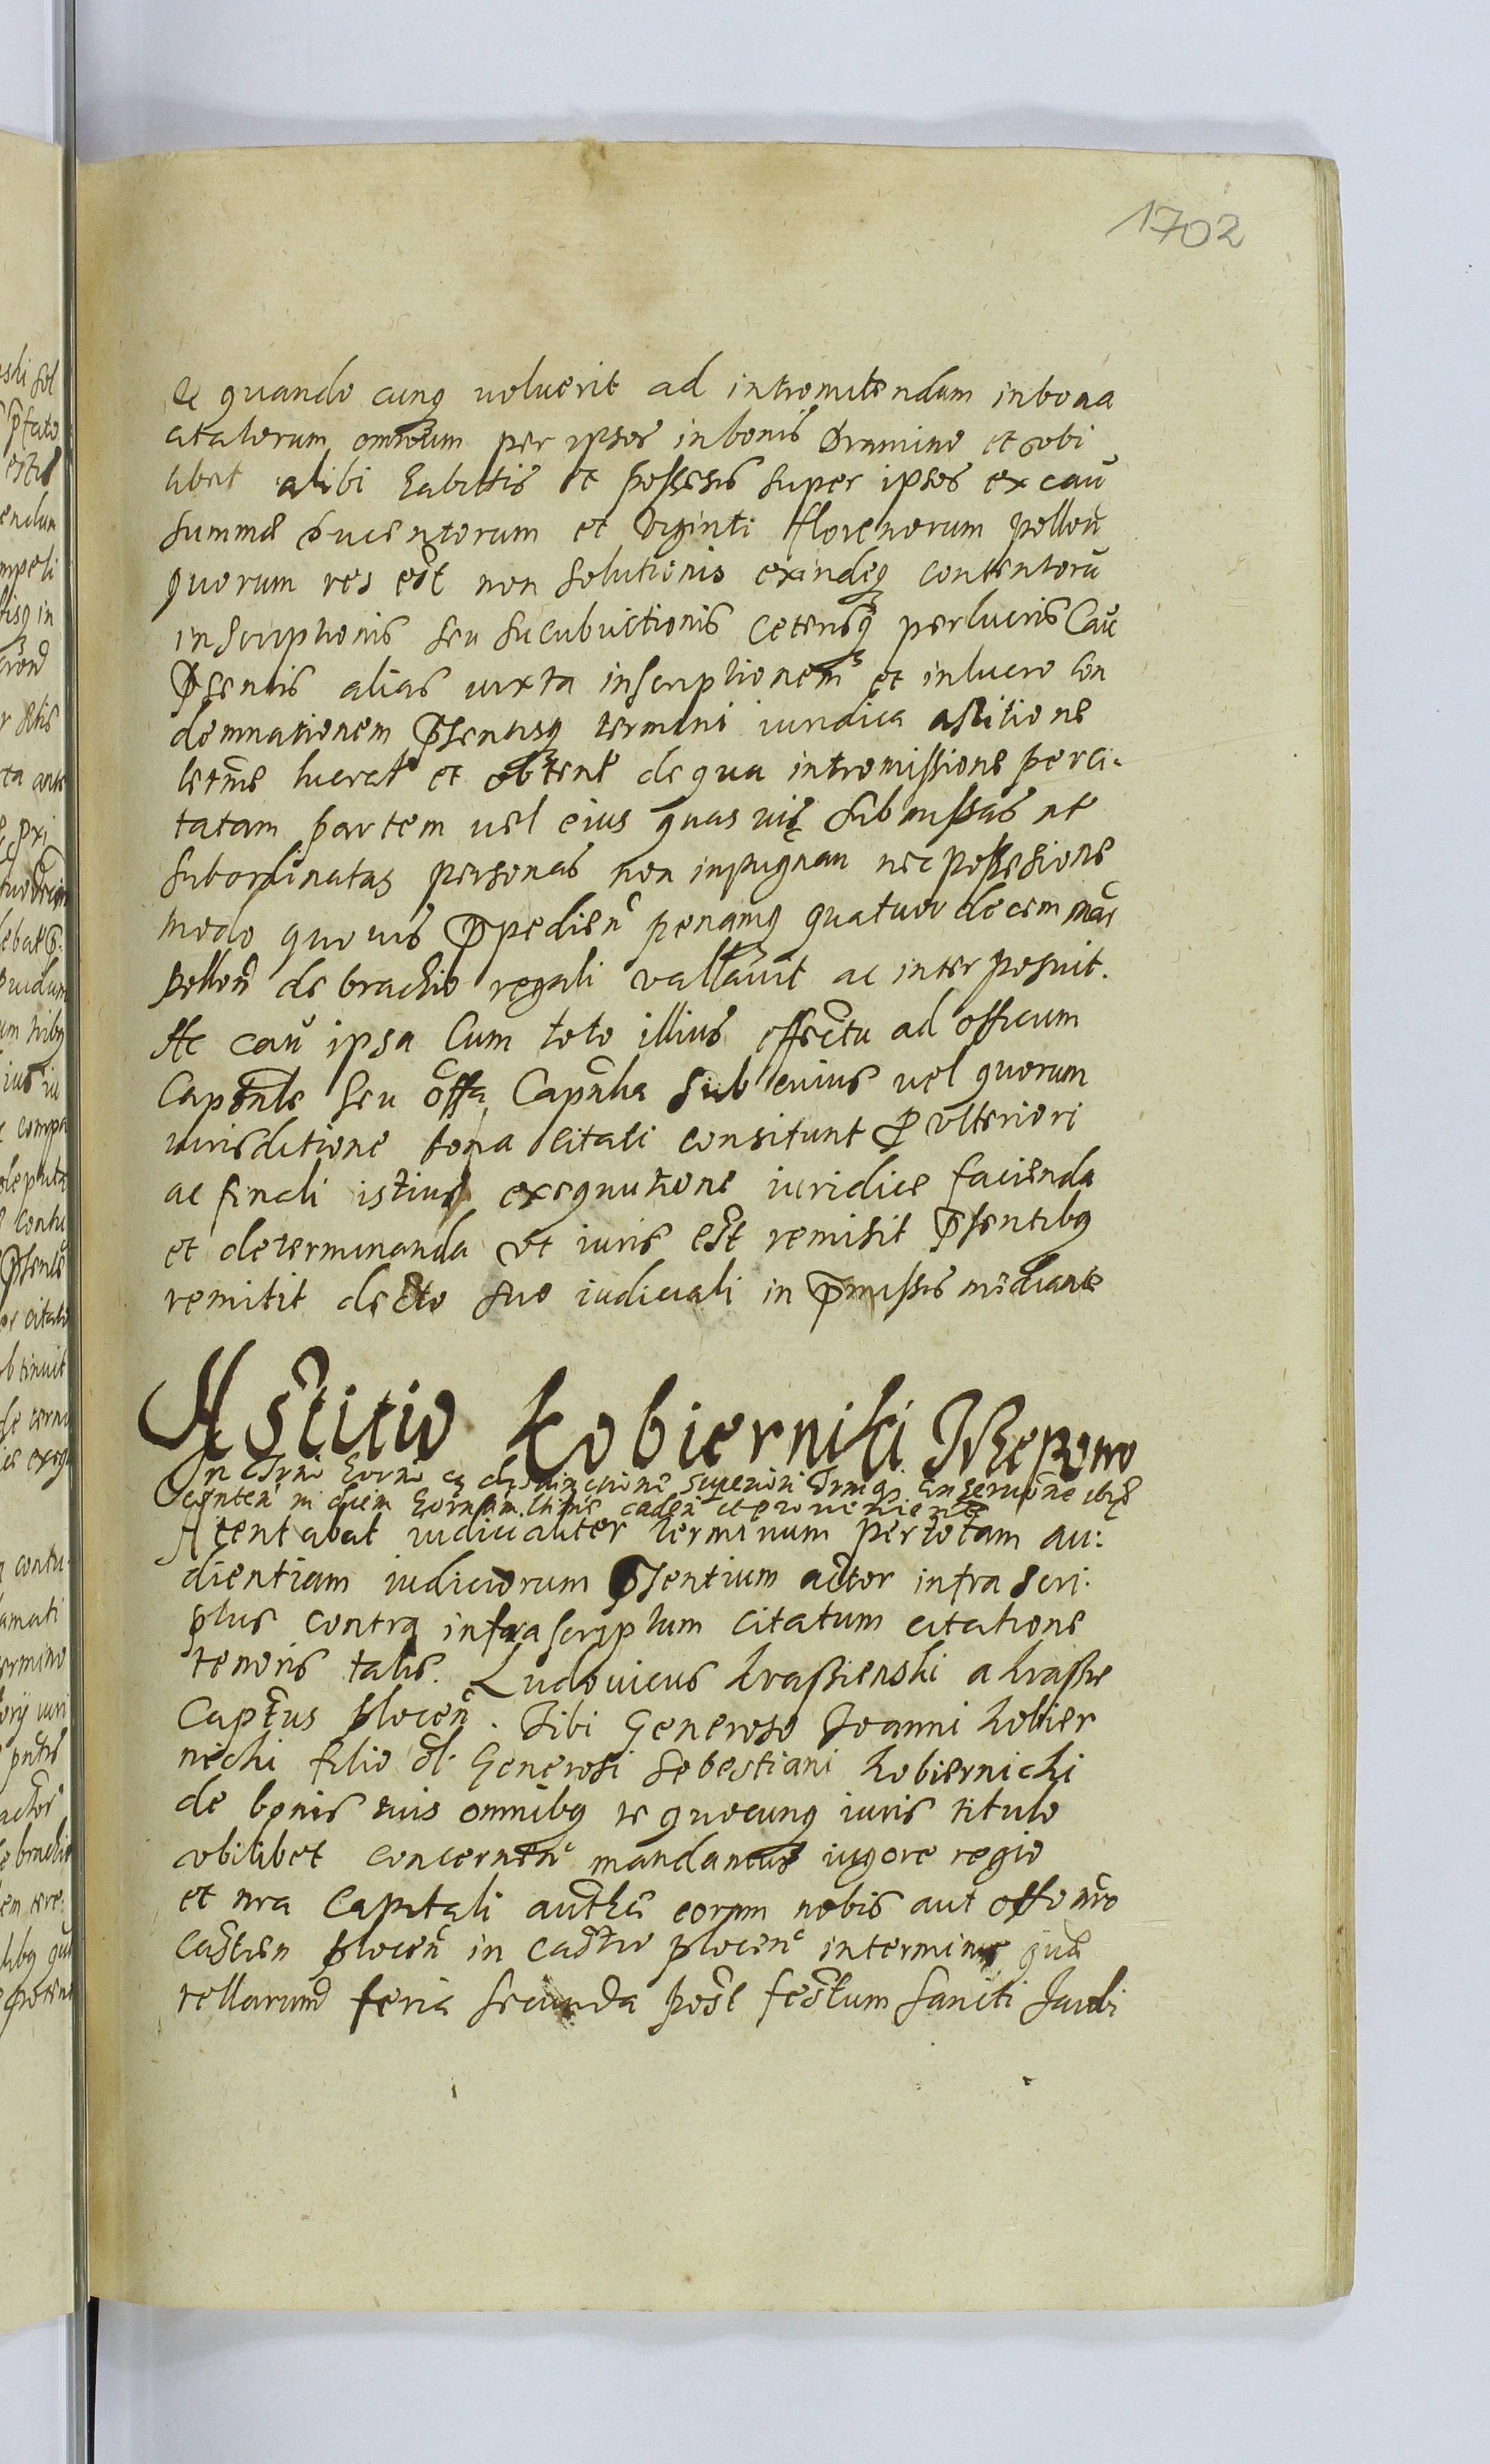 1702
& quando cunq voluerit ad intromitendum in bona
citatorum omnium per ipsos in bonis Dramino et vobi
libet alibi habitis et possessis super ipsos ex cau
summae ducentorum et viginti florenorum pollon
quorum res est non solutionis exindeq contentoru
inscriptionis seu sucubuitionis ceterisq perlucris Cau
pñsentis alias iuxta inscriptionem et in lucro con
demnationem pñsentisq termini iuridica astitione
lucrat et obtent de qua intromissione perci-
tatam partem vel eius quas vis submissas et
subordinatas personas non inpugnan nec possesione
modo quovis ppedien penamq quatuor decem mar
pollon de brachio regali vallavit ac interposuit.
Ac cau ipsa cum toto illius effectu ad officium
Capnle seu offa Capnlia sub cuius vel quorum
iurisditione bona citati consitunt p ulteriori
ac finali istius exequutione iuridice facienda
et determinanda ut iuris est remisit psentibq
remitit decto suo iudiciali in pmissis mediante
Astitio Kobierniki
superiori
Atentabat iudicialiter terminum per totam au:
dientiam iudiciorum psentium actor infra scri-
ptus contra infra scriptum citatum citatione
tenoris talis. Ludovicus Krassienski a Krassne
Captus plocen. Tibi Generoso Joanni Kobier
nichi filio ol. Generosi Sebestiani Kobiernichi
de bonis tuis omnibq te quocunq iuris titulo
vbilibet concernen mandamus vigore regio
et nra capitali autha coram nobis aut offo nro
castren plocen in castro plocen in terminis que
rellarum feria secunda post festum sancti Jacobi